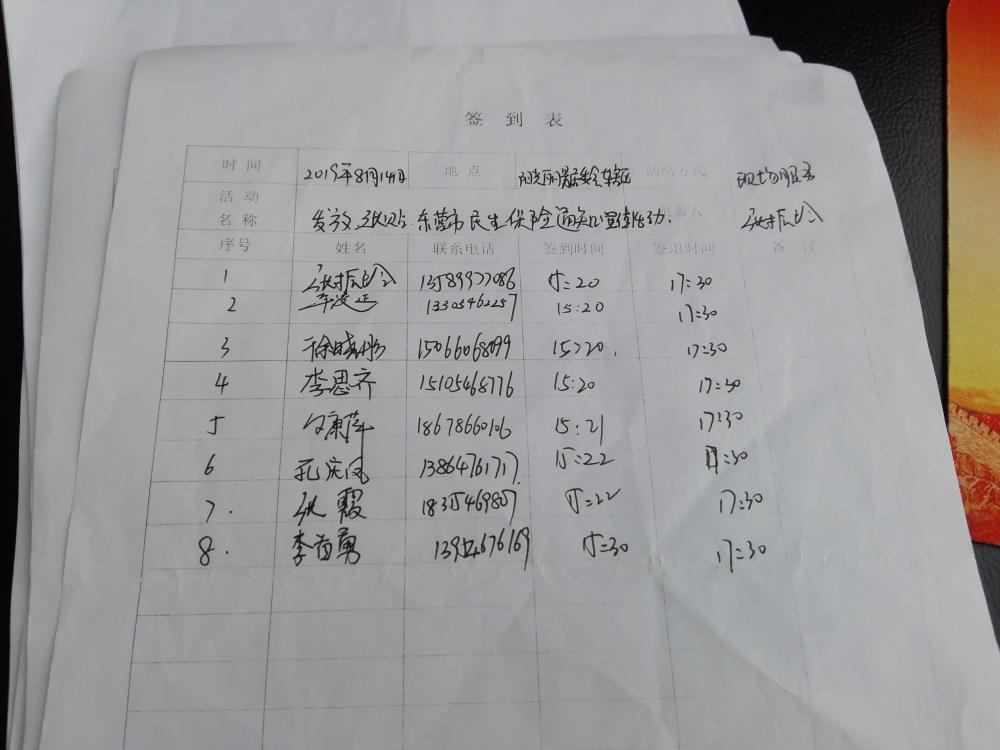 签到表
时间 2019年8月14日 地点 活动方式 现场服务
活动
名称 发放、张贴 东营市民生保险通知 宣传活动. 负责人
序号 姓名 联系电话 签到时间 签退时间 备注
1 15:20 17:30
2 李凌志 13305462257 15:20 17:30
3 徐晓彤 15066068099 15:20. 17:30
4 李思齐 15105468776 15:20 17:30
5 18678660106 15:21 17:30
6 孔庆凤 13864761717. 15:22 17:30
7. 张霞 15:22 17:30
8. 李首勇 15:30 17:30